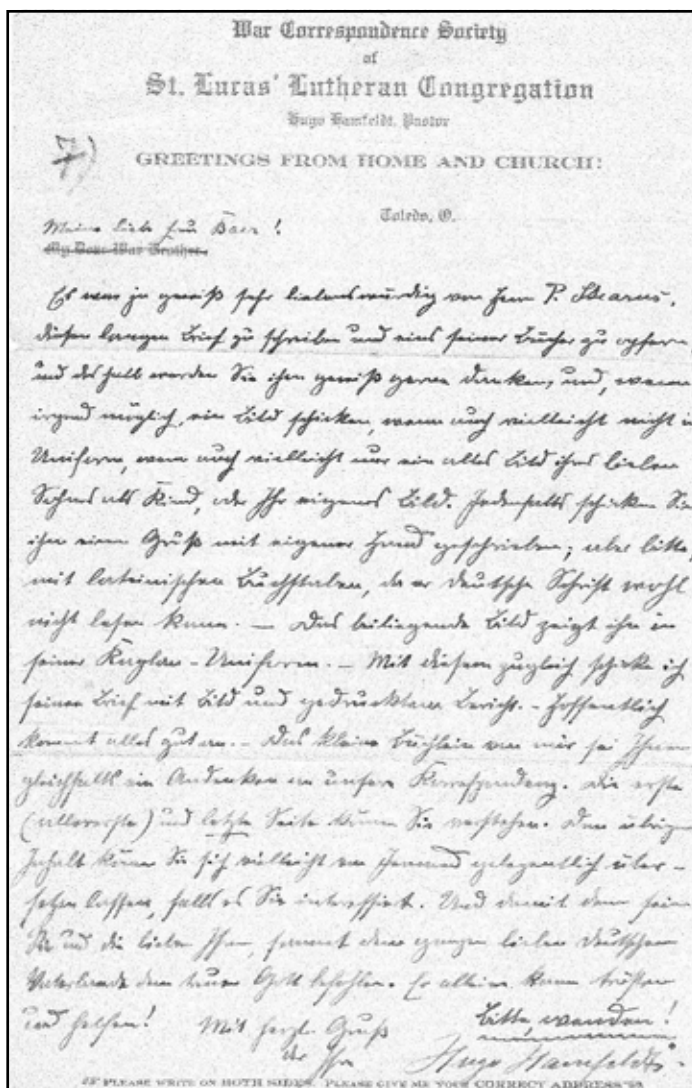 War Correspondence Society
of
St. Lucas' Lutheran Congregation
Hugo Hamfeldt, Pastor
7)
GREETINGS FROM HOME AND CHURCH!
Toledo, O.
Meine liebe Frau Baer!
My Dear War Brother,
Es war ja gewiß sehr liebenswürdig von Herrn P. Stearns,
diesen langen Brief zu schreiben und eins seiner Bücher zu opfern,
und deshalb werden Sie ihm gewiß gerne danken, und, wenn
irgend möglich, ein Bild schicken, wenn auch vielleicht nicht in
Uniform, wenn auch vielleicht nur ein altes Bild ihres lieben
Sohnes als Kind, oder Ihr eigenes Bild. Jedenfalls schicken Sie
ihm einen Gruß mit eigener Hand geschrieben; aber bitte,
mit lateinischen Buchstaben, da er deutsche Schrift wohl
nicht lesen kann. — Das beiliegende Bild zeigt ihn in
seiner Kaplan-Uniform. — Mit diesem zugleich schicke ich
seinen Brief mit Bild und gedrucktem Bericht. — Hoffentlich
kommt alles gut an. — Das kleine Büchlein von mir sei Ihnen
gleichfalls ein Andenken an unsere Korrespondenz. Die erste
(allererste) und letzte Seite können Sie verstehen. Den übrigen
Inhalt können Sie sich vielleicht von Jemand gelegentlich über-
setzen lassen, falls es Sie interessiert. Und damit denn seien
Sie und die lieben Ihren, sammt dem ganzen lieben deutschen
Vaterlande dem treuen Gott befohlen. Er allein kann trösten
und helfen! Mit herzl. Gruß Bitte, wenden!
Ihr Hugo Hamfeldt
PLEASE WRITE ON BOTH SIDES. PLEASE GIVE ME YOUR CORRECT ADDRESS.